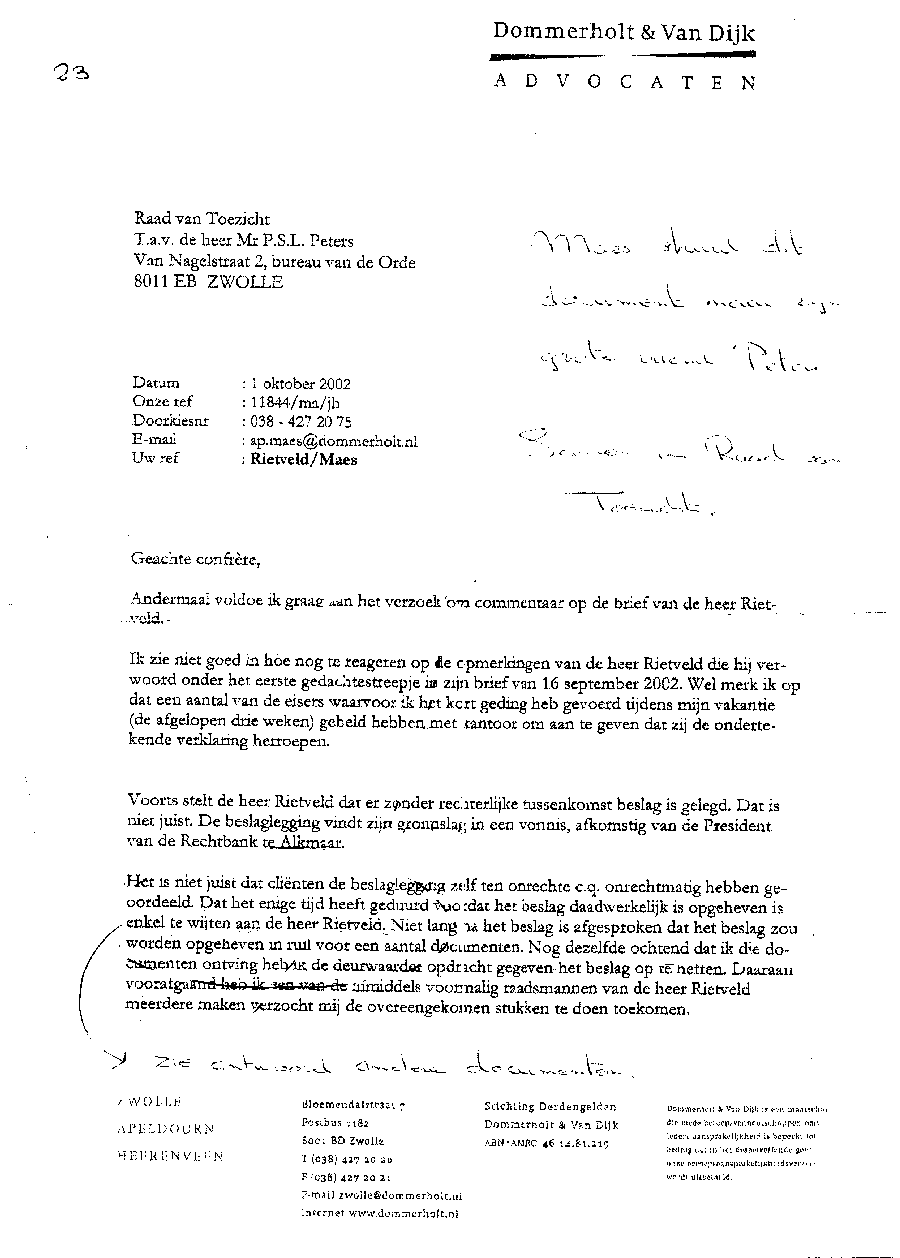 Dommerholt & Van Dijk
A D V O C A T E N
23
Raad van Toezicht
T.a.v. de heer Mr P.S.L. Peters
Van Nagelstraat 2, bureau van de Orde
8011 EB ZWOLLE
Maes stuurt dit
document naar zijn
grote vriend Peters
Samen in Raad van
Toezicht.
Datum : 1 oktober 2002
Onze ref : 11844/ma/jh
Doorkiesnr : 038 - 427 20 75
E-mail : ap.maes@dommerholt.nl
Uw ref : Rietveld/Maes
Geachte confrère,
Andermaal voldoe ik graag aan het verzoek om commentaar op de brief van de heer Riet-
veld.
Ik zie niet goed in hoe nog te reageren op de opmerkingen van de heer Rietveld die hij ver-
woord onder het eerste gedachtestreepje in zijn brief van 16 september 2002. Wel merk ik op
dat een aantal van de eisers waarvoor ik het kort geding heb gevoerd tijdens mijn vakantie
(de afgelopen drie weken) gebeld hebben met kantoor om aan te geven dat zij de onderte-
kende verklaring herroepen.
Voorts stelt de heer Rietveld dat er zonder rechterlijke tussenkomst beslag is gelegd. Dat is
niet juist. De beslaglegging vindt zijn grondslag in een vonnis, afkomstig van de President
van de Rechtbank te Alkmaar.
Het is niet juist dat cliënten de beslaglegging zelf ten onrechte c.q. onrechtmatig hebben ge-
oordeeld. Dat het enige tijd heeft geduurd voordat het beslag daadwerkelijk is opgeheven is
enkel te wijten aan de heer Rietveld. Niet lang na het beslag is afgesproken dat het beslag zou
worden opgeheven in ruil voor een aantal documenten. Nog dezelfde ochtend dat ik die do-
cumenten ontving heb ik de deurwaarder opdracht gegeven het beslag op te heffen. Daaraan
voorafgaand heb ik een van de inmiddels voormalig raadsmannen van de heer Rietveld
meerdere malen verzocht mij de overeengekomen stukken te doen toekomen.
Zie antwoord andere documenten.
ZWOLLE
APELDOORN
HEERENVEEN
Bloemendalstraat 7
Postbus 1182
8001 BD Zwolle
T (038) 427 20 20
F (038) 427 20 21
E-mail zwolle@dommerholt.nl
Internet www.dommerholt.nl
Stichting Derdengelden
Dommerholt & Van Dijk
ABN·AMRO 46 14.81.219
Dommerholt & Van Dijk is een maatschap